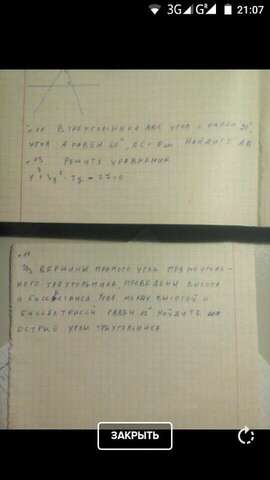 3G G 21:07
В ТРЕУГОЛЬНИКЕ АВС УГОЛ С РАВЕН 90°,
УГОЛ А РАВЕН
РЕШИТЕ УРАВНЕНИЕ
№11
ИЗ ВЕРШИНЫ ПРЯМОГО УГЛА ПРЯМОУГОЛЬ-
НОГО ТРЕУГОЛЬНИКА ПРОВЕДЕНЫ ВЫСОТА
И БИССЕКТРИСА УГОЛ МЕЖДУ ВЫСОТОЙ И
БИССЕКТРИСЫ РАВЕН НАЙДИТЕ
ОСТРЫЙ УГЛЫ ТРЕУГОЛЬНИКА
ЗАКРЫТЬ